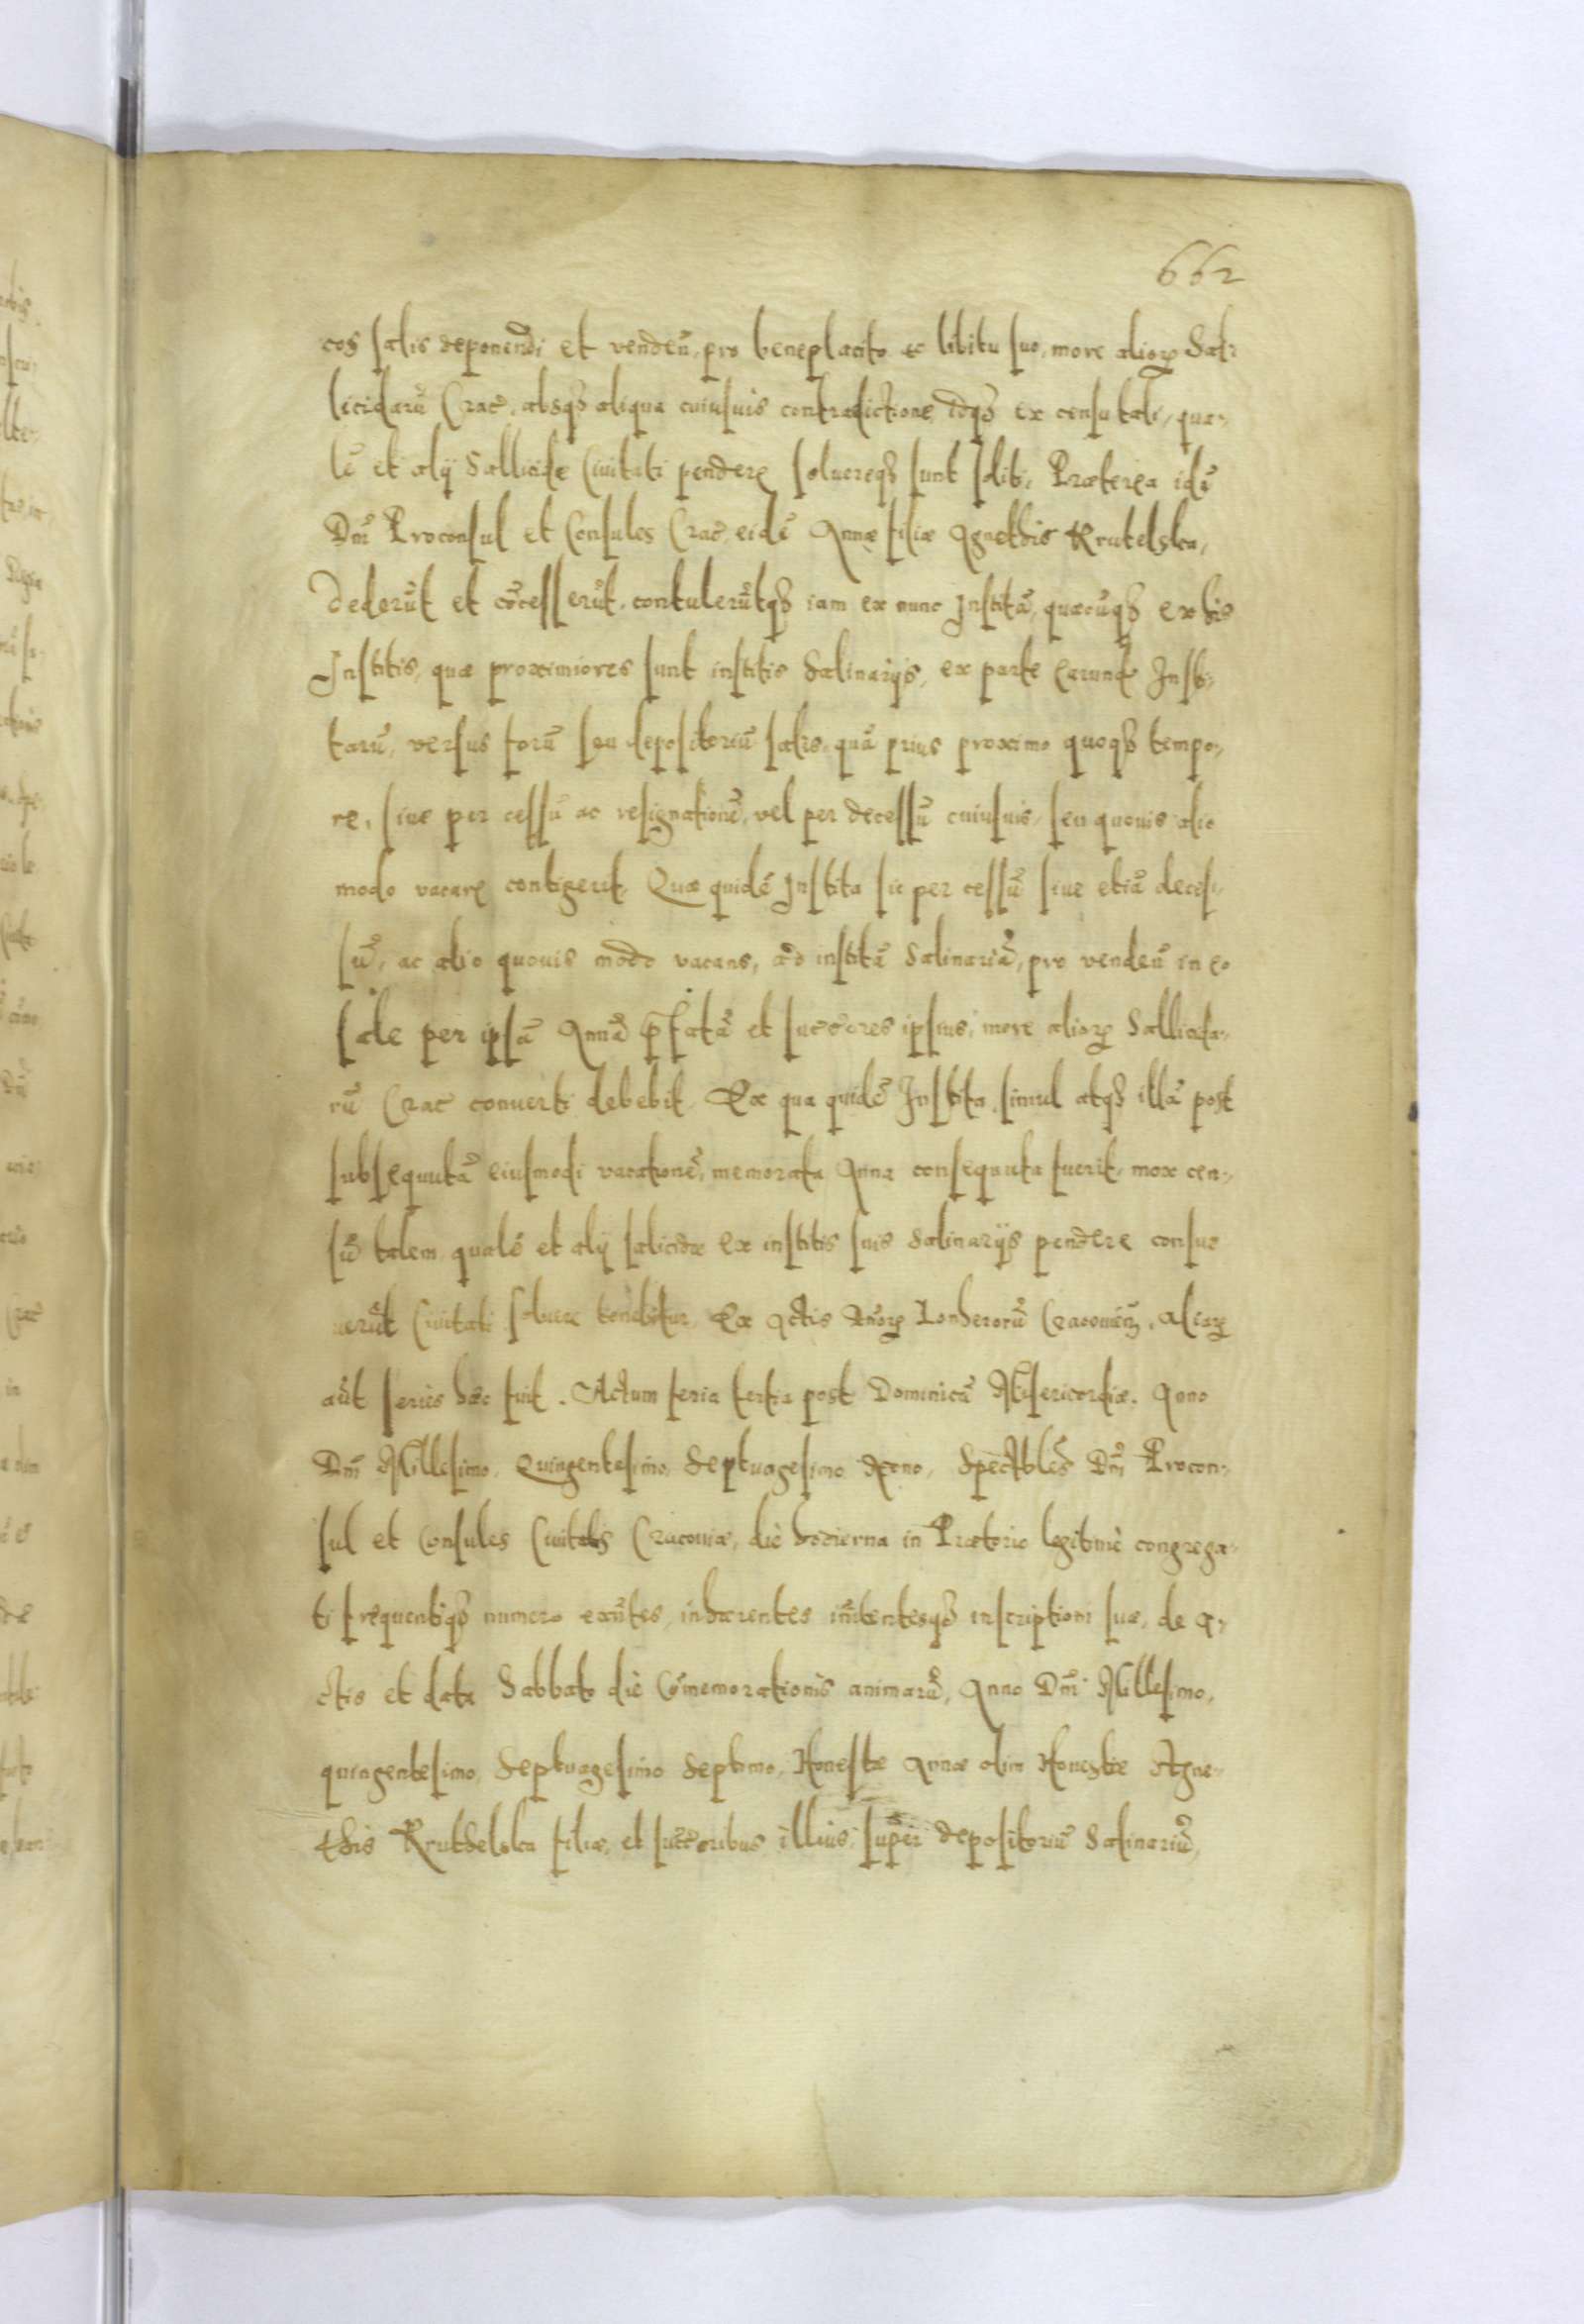 662
cos salis deponendi et venden̄, pro beneplacito ac libitu suo, more alioꝝ Sal-
licidarū Crac̄. absqꝫ aliqua cuiusuis contradictione, idqꝫ ex censu tali, qua-
lē et alij Sallicidæ Ciuitati pendere soluereqꝫ sunt soliti. Præterea idē
Dn̄i Proconsul et Consules Crac̄. eidē Annæ filiæ Agnethis Krutelska,
dederūt et cōcesserūt, contulerūtqꝫ iam ex nunc Institā, quæcūqꝫ ex his
Institis, quæ proximiores sunt institis Salinarijs, ex parte earund̄ Insti-
tarū, versus forū seu depositoriū salis, quā prius proximo quoqꝫ tempo-
re, siue per cessū ac resignationē, vel per decessū cuiusuis, seu quouis alio
modo vacare contigerit. Quæ quidē Instita sic per cessū siue etiā deces-
sū, ac alio quouis modo vacans, ad institā Salinariā, pro venden̄ in eo
sale per ipsā Annā p̄fatā et succ̄ores ipsius, more alioꝝ Sallicida-
rū Crac̄ conuerti debebit. Ex qua quidē Instita, simul atqꝫ illā post
subsequutā eiusmodi vacationē, memorata Anna consequuta fuerit, mox cen-
sū talem qualē et alij salicidæ ex institis suis Salinarijs pendere consue
uerūt Ciuitati soluere tenebitur. Ex Actis Dn̄oꝝ Lonherorū Cracouien̄, aliaꝝ
aūt series hæc fuit. Actum feria tertia post Dominicā Misericordiæ. Anno
Dn̄i Millesimo, Quingentesimo, Septuagesimo Nono, Spectabiles Dn̄i Procon-
sul et Consules Ciuitatis Cracouiæ, die hodierna in Prætorio legitimè congrega-
ti frequentiqꝫ numero exn̄tes, inhærentes in̄itentesqꝫ inscriptioni suæ, de a-
ctis et data Sabbato die Cōmemorationis animarū, Anno Dn̄i Millesimo,
quingentesimo, Septuagesimo Septimo, Honestæ Annæ olim Honestæ Agne-
this Kruthelska filiæ, et succ̄oribus illius, super depositoriū Salinariū,